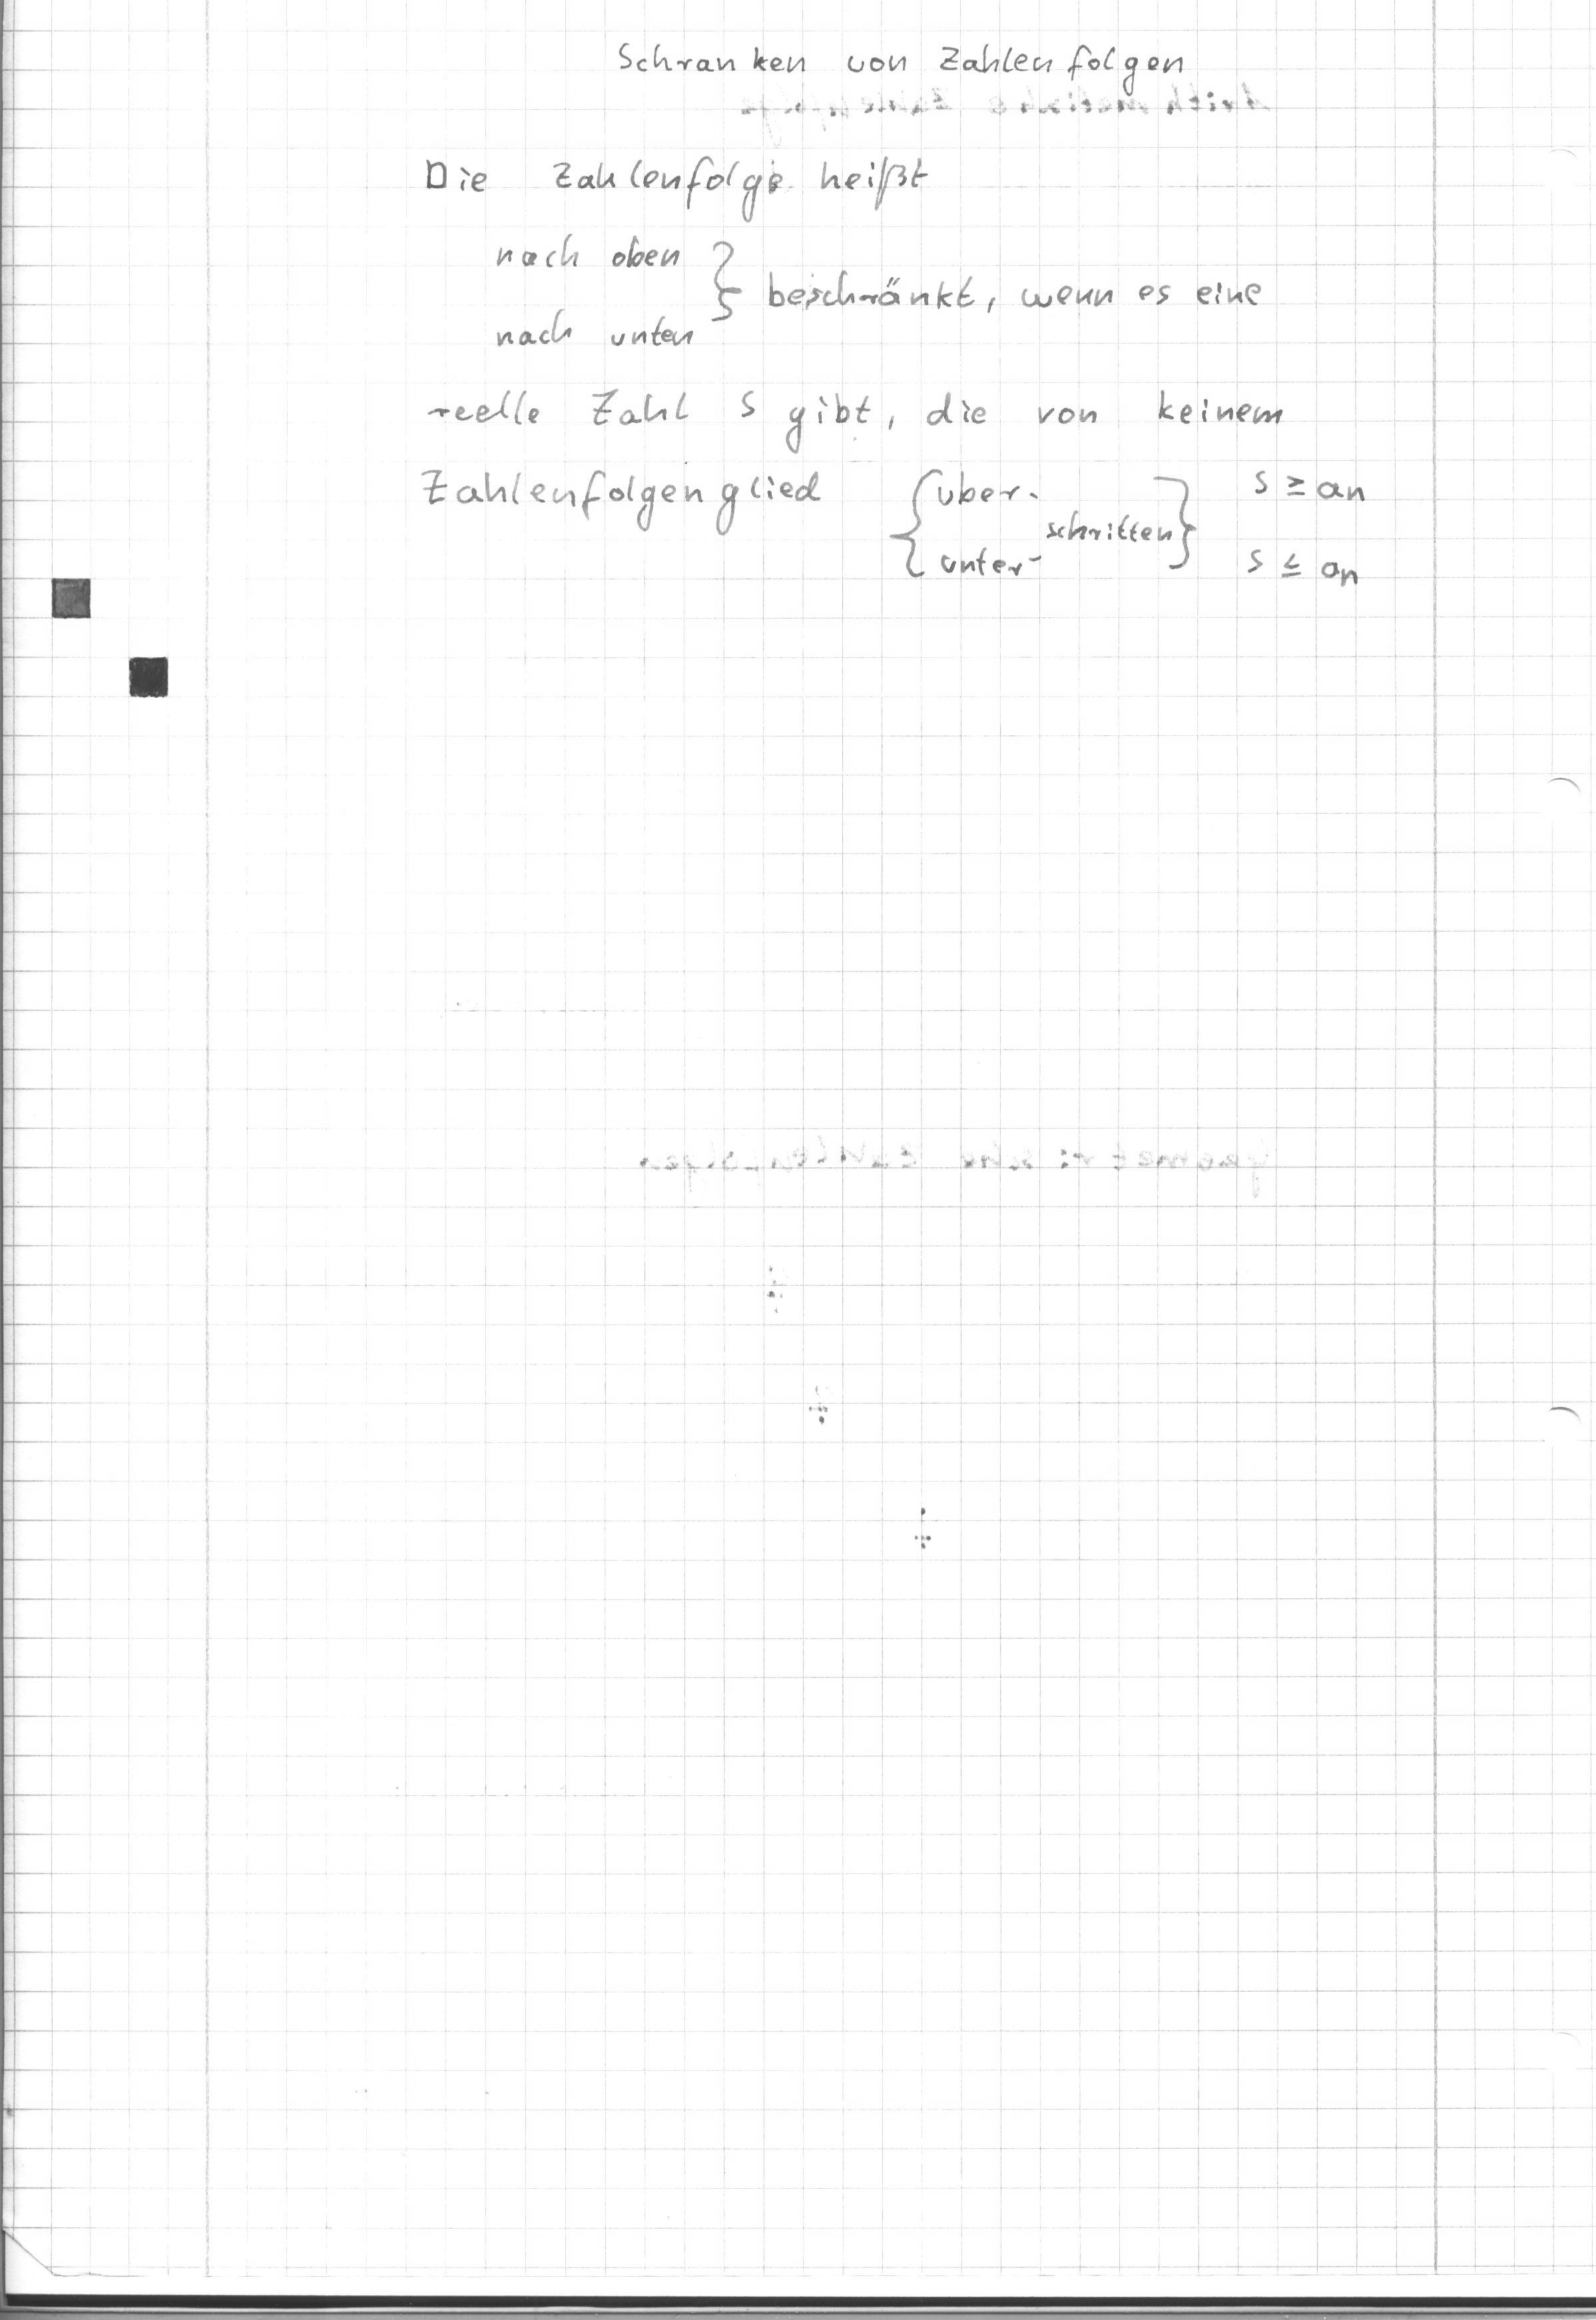 Schranken von Zahlenfolgen
Die Zahlenfolge heißt
nach oben
beschränkt, wenn es eine
nach unten
reelle Zahl S gibt, die von keinem
Zahlenfolgenglied { über- } S ≥ an
schritten
unter- S ≤ an